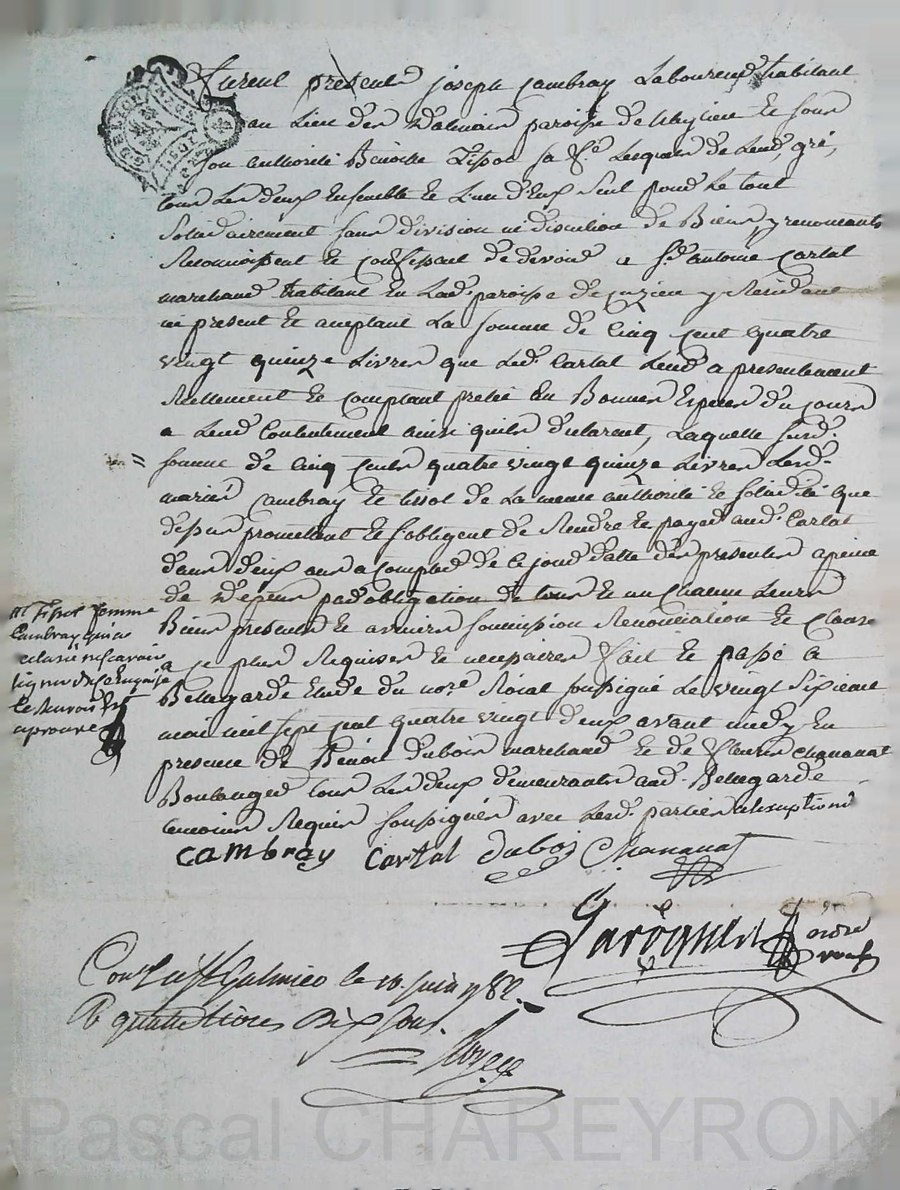 furent presents joseph Cambray Laboureur habitant
au Lieu des paroisse de et sous
son authorité Benoite Tissot sa fe Lesquels de Leurd. gré,
tous Les deux Ensemble et L'un d'Eux seul pour Le tout
Solidairement sans division ni discution de Biens, y renoncants
Reconnoissent et confessent de devoir a Sr antoine Cartal
marchand habitant en Lad. paroisse de cuzieu y Residant
ici present et aceptant La somme de Cinq cent quatre
vingt quinze Livres que Led. Cartal Leur a presentement
Reellement et comptant preté en Bonnes Especes du cours
a Leurd Contentement ainsi quils declarent, Laquelle susd.
somme de Cinq Cents quatre vingt quinze Livres Lesd.
mariés Cambray et tissot de La meme authorité et solidité que
dessus promettent et s'obligent de Rendre et payer aud. Cartal
dans deux ans a Compter de ce jour datte des presentes a peine
de Depens par obligation de tous et un Chacun Leurs
Biens presents et avenirs soumission Renonciation et Clause
a ce plus Requises et necessaires fait et passé a
Bellegarde Etude du nore Roial soussigné Le vingt sixieme
mai mil sept cent quatre vingt deux avant midy En
presence de Benoit dubois marchand et de fleury Chananat
Boulanger tous Les deux demeurants aud. Bellegarde
temoins Requis soussignés avec Lesd. parties
// Tissot femme
Cambray qui a
declaré ne scavoir
signer de ce Enquise
et
aprouvé
cambray Cartal dubois Chananat
Laroque
Conlé a St Galmier le 10 juin 1782.
R quatre livres dix sous.
Pascal CHAREYRON